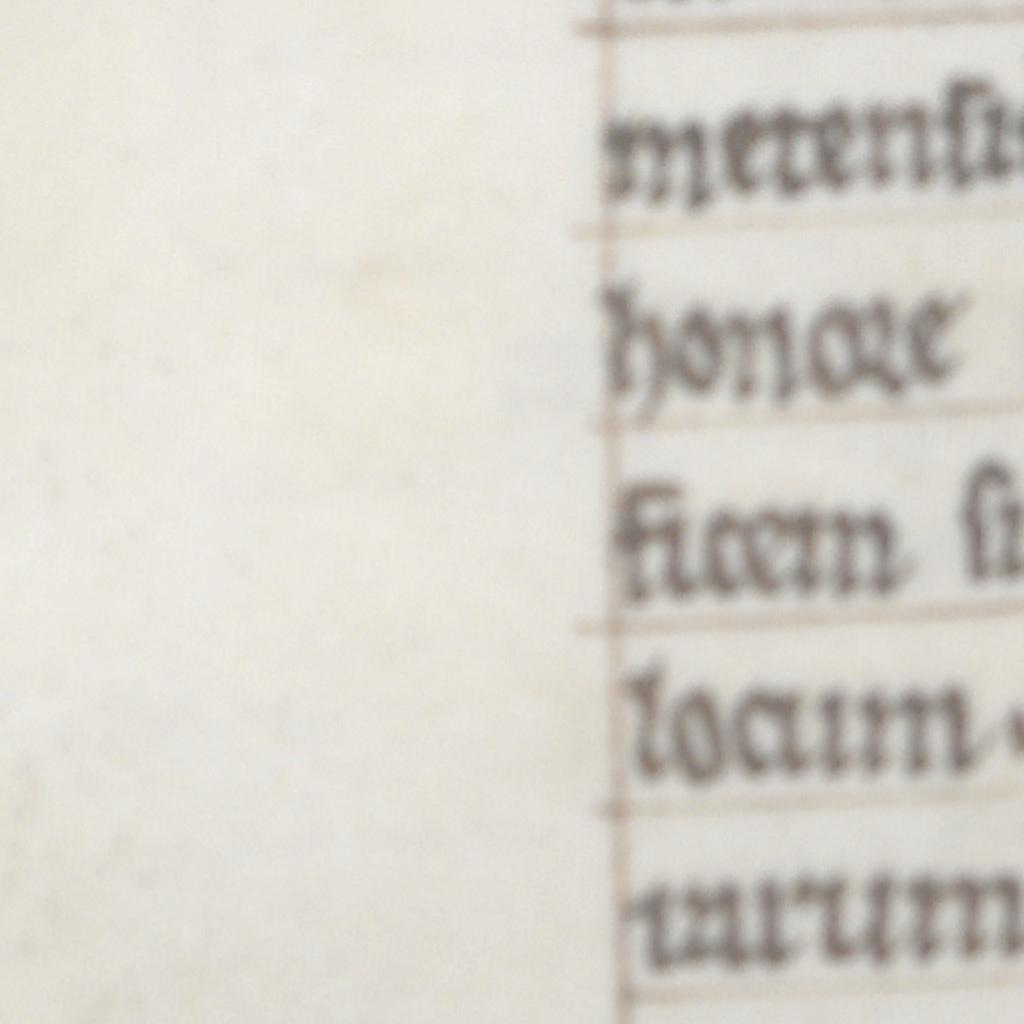 metensi
honore
ficem si
locum
turum